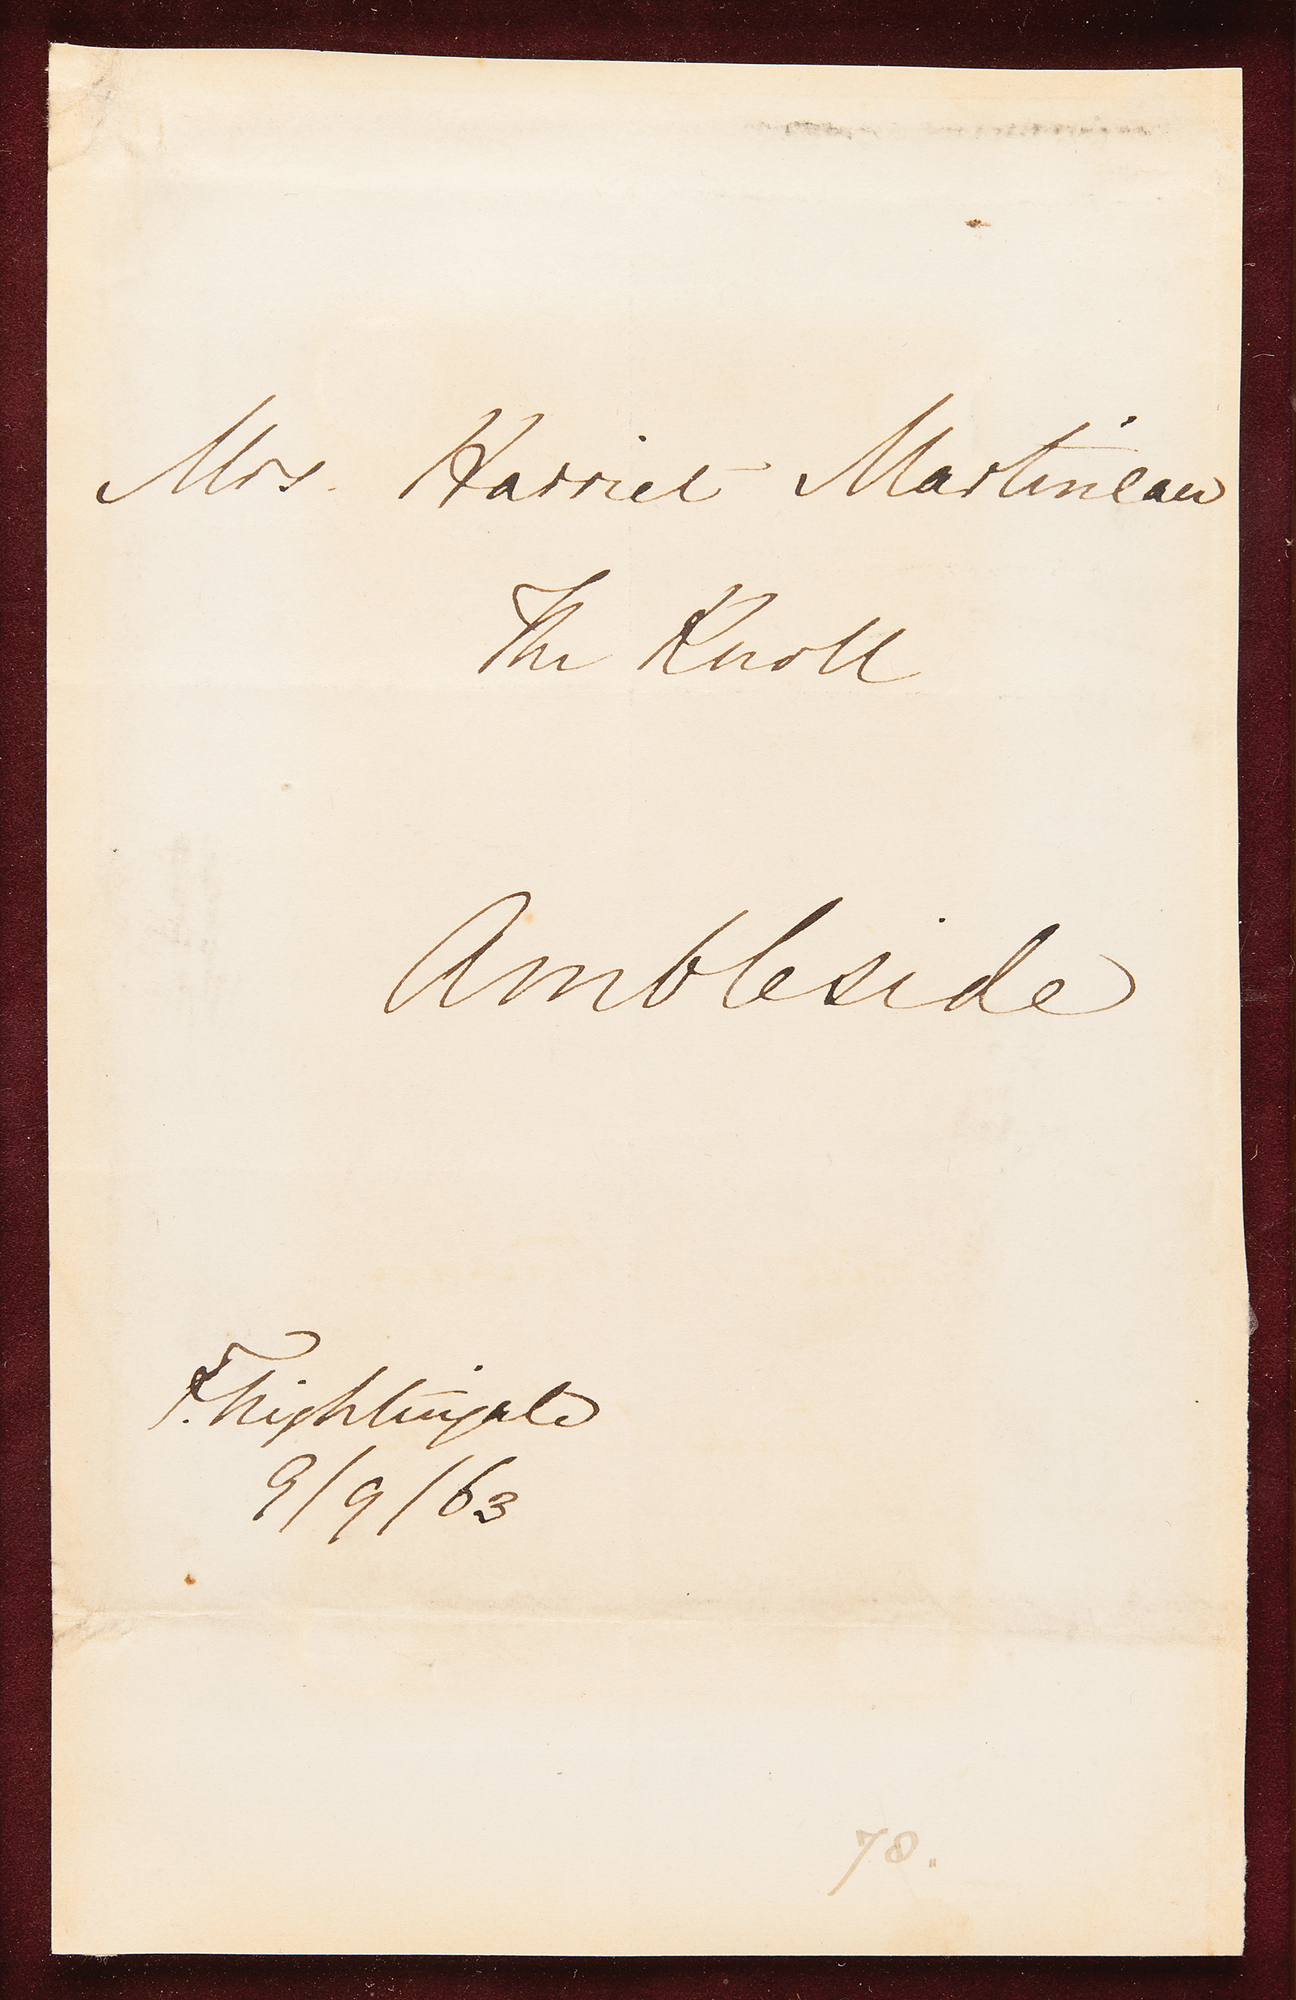 Mrs. Harriet Martineau
The Knoll
Ambleside
F. Nightingale
9/9/63
78.